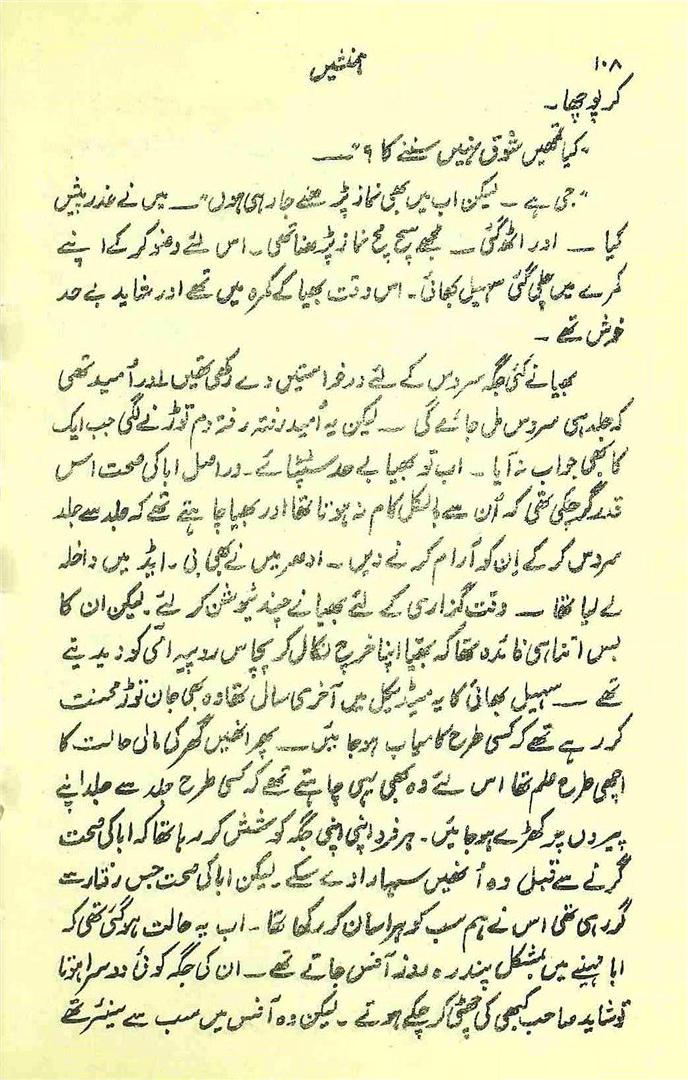 ۱۰۸ ہمنشیں
کر پوچھا۔
"کیا تمھیں شوق نہیں سننے کا ؟" —
"جی ہے ۔ لیکن اب میں بھی نماز پڑھنے جا رہی ہوں" — میں نے عذر پیش
کیا — اور اٹھ گئی — مجھے سچ مچ نماز پڑھنا تھی ۔ اس لئے وضو کر کے اپنے
کمرے میں چلی گئی سہیل بھائی ۔ اس وقت بھیا کے کمرہ میں تھے اور شاید بے حد
خوش تھے ۔
بھیا نے کئی جگہ سروس کے لئے درخواستیں دے رکھی تھیں اور اُمید تھی
کہ جلد ہی سروس مل جائے گی — لیکن یہ اُمید رفتہ رفتہ دم توڑنے لگی جب ایک
کا بھی جواب نہ آیا ۔ اب تو بھیا بے حد سٹپٹائے ۔ دراصل ابا کی صحت اس
قدر گر چکی تھی کہ اُن سے بالکل کام نہ ہوتا تھا اور بھیا چاہتے تھے کہ جلد سے جلد
سروس کر کے اِن کو آرام کرنے دیں ۔ ادھر میں نے بھی بی ۔ ایڈ میں داخلہ
لے لیا تھا — وقت گزاری کے لئے بھیا نے چند ٹیوشن کر لئے ۔ لیکن ان کا
بس اتنا ہی فائدہ تھا کہ بھیا اپنا خرچ نکال کر پچاس روپیہ امّی کو دیدیتے
تھے — سہیل بھائی کا یہ میڈیکل میں آخری سال تھا وہ بھی جان توڑ محنت
کر رہے تھے کہ کسی طرح کامیاب ہو جائیں — پھر انھیں گھر کی مالی حالت کا
اچھی طرح علم تھا اس لئے وہ بھی یہی چاہتے تھے کہ کسی طرح جلد سے جلد اپنے
پیروں پر کھڑے ہو جائیں ۔ ہر فرد اپنی اپنی جگہ کوشش کر رہا تھا کہ ابا کی صحت
گرنے سے قبل وہ اُنھیں سہارا دے سکے ۔ لیکن ابا کی صحت جس رفتار سے
گر رہی تھی اس نے ہم سب کو ہراساں کر رکھا تھا ۔ اب یہ حالت ہو گئی تھی کہ
ابا مہینے میں بمشکل پندرہ روز آفس جاتے تھے — ان کی جگہ کوئی دوسرا ہوتا
تو شاید صاحب کبھی کی چھٹی کر چکے ہوتے ۔ لیکن وہ آفس میں سب سے سینئر تھے